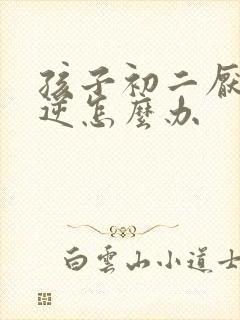 孩子初二厭
逆怎麼办
白雲山小道士